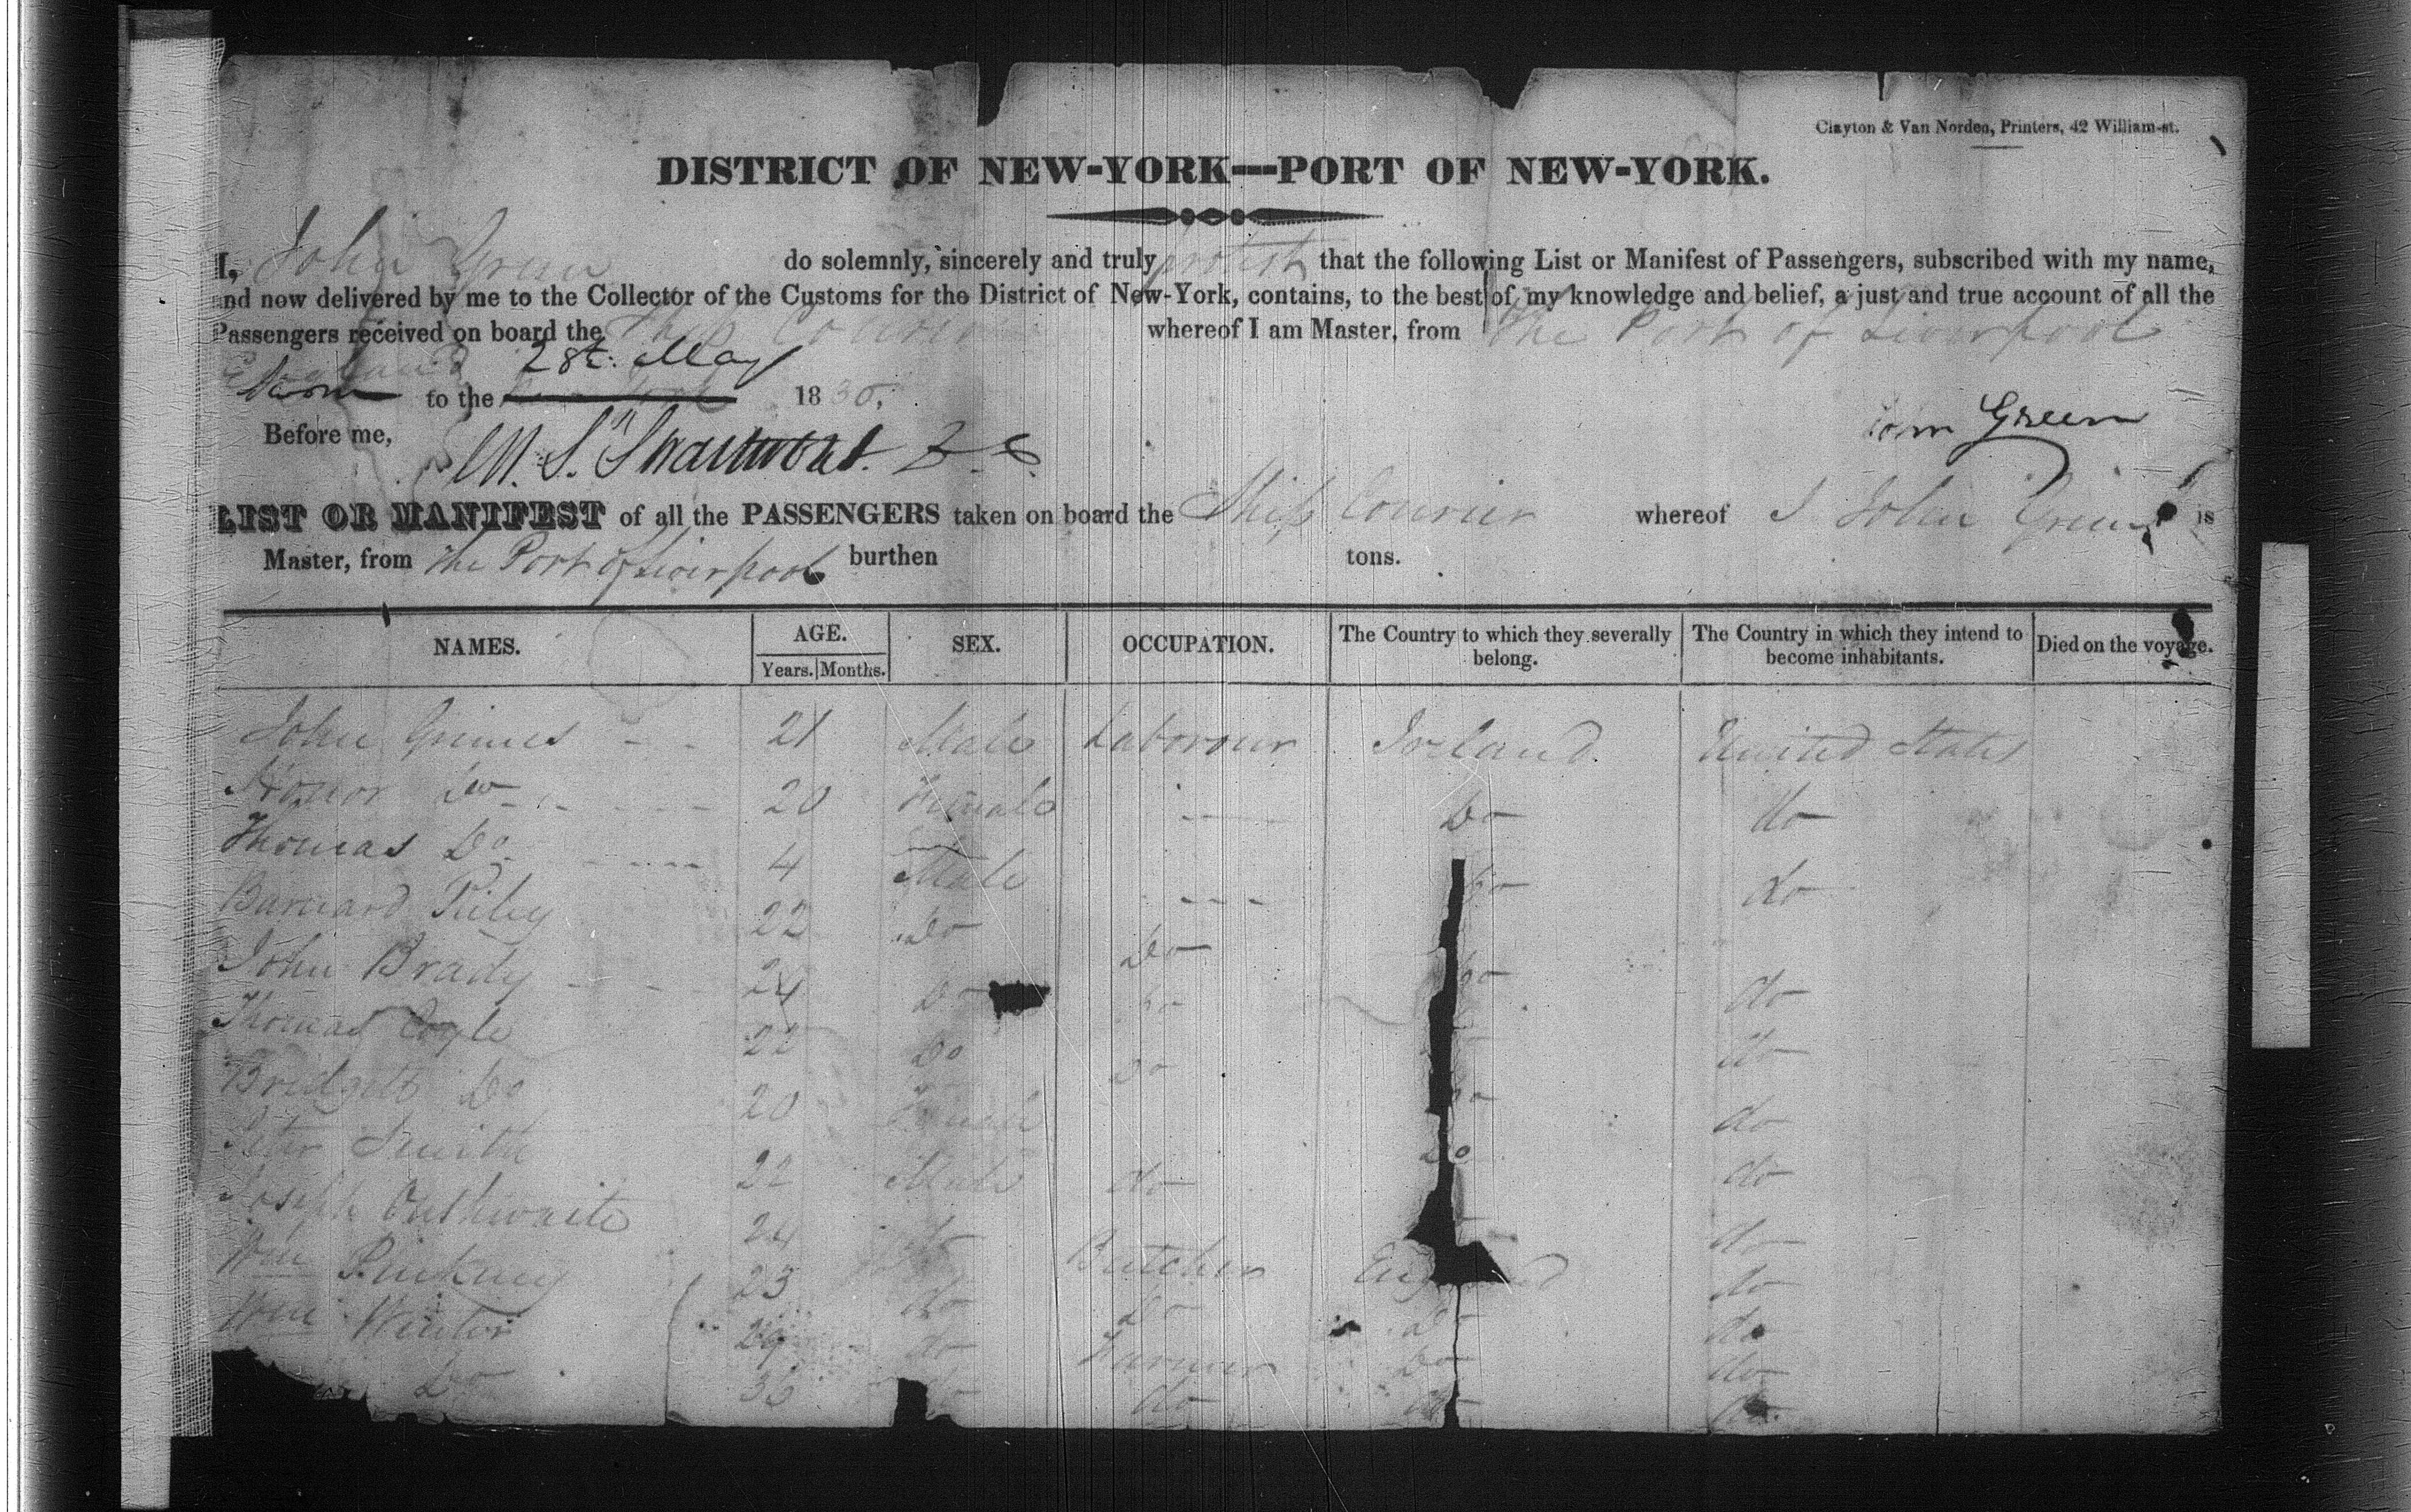 Clayton & Van Norden, Printers, 42 William-st.
DISTRICT OF NEW-YORK—PORT OF NEW-YORK.
I, John Green do solemnly, sincerely and truly protest that the following List or Manifest of Passengers, subscribed with my name,
and now delivered by me to the Collector of the Customs for the District of New-York, contains, to the best of my knowledge and belief, a just and true account of all the
Passengers received on board the Ship Courier whereof I am Master, from the Port of Liverpool
England 28t. May
Sworn to the 1830.
John Green
Before me, M. S. Swartwout. D C
LIST OR MANIFEST of all the PASSENGERS taken on board the Ship Courier whereof I John Green is
Master, from the Port of Liverpool burthen tons.
NAMES. AGE. Years. Months. SEX. OCCUPATION. The Country to which they severally belong. The Country in which they intend to become inhabitants. Died on the voyage.
John Grimes - - 21 Male Labourer Ireland United States
Honor Do 20 Female Do do
Thomas Do 4 Male Do do
Barnard Riley 22 Do Do Do do
John Brady 24 Do Do do
Thomas Coyle 22 Do Do Do do
Bridgett Do 20 Female Do do
Peter Smith 22 Male do do
Joseph Outhwaite 24 do Butcher England do
Wm Pinkney 23 do Do Do do
Wm Winter 29 do Farmer Do do
Do 36 do do do do